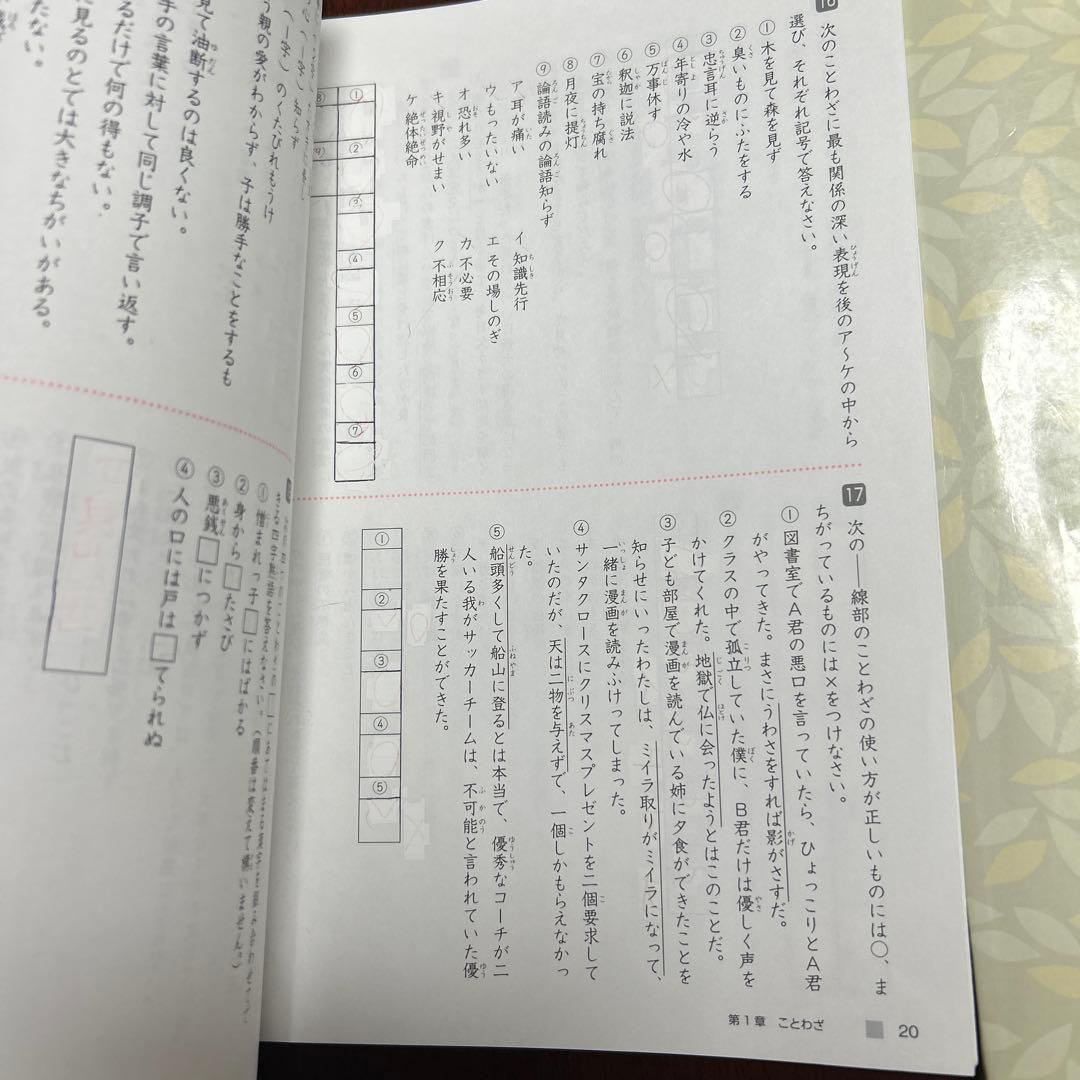 16
次のことわざに最も関係の深い表現を後のア～ケの中から
選び、それぞれ記号で答えなさい。
① 木を見て森を見ず
② 臭いものにふたをする
③ 忠言耳に逆らう
④ 年寄りの冷や水
⑤ 万事休す
⑥ 釈迦に説法
⑦ 宝の持ち腐れ
⑧ 月夜に提灯
⑨ 論語読みの論語知らず
ア 耳が痛い　イ 知識先行
ウ もったいない　エ その場しのぎ
オ 恐れ多い　カ 不必要
キ 視野がせまい　ク 不相応
ケ 絶体絶命
① ② ③ ④ ⑤ ⑥ ⑦
⑧ ⑨
17 次の――線部のことわざの使い方が正しいものには○、ま
ちがっているものには×をつけなさい。
① 図書室でA君の悪口を言っていたら、ひょっこりとA君
がやってきた。まさにうわさをすれば影がさすだ。
② クラスの中で孤立していた僕に、B君だけは優しく声を
かけてくれた。地獄で仏に会ったようとはこのことだ。
③ 子ども部屋で漫画を読んでいる姉に夕食ができたことを
知らせにいったわたしは、ミイラ取りがミイラになって、
一緒に漫画を読みふけってしまった。
④ サンタクロースにクリスマスプレゼントを二個要求して
いたのだが、天は二物を与えずで、一個しかもらえなかっ
た。
⑤ 船頭多くして船山に登るとは本当で、優秀なコーチが二
人いる我がサッカーチームは、不可能と言われていた優
勝を果たすことができた。
① ② ③ ④ ⑤
第1章　ことわざ
20
（一字）知らず
（一字）のくたびれもうけ
う親の愛がわからず、子は勝手なことをするも
見て油断するのは良くない。
手の言葉に対して同じ調子で言い返す。
るだけで何の得もない。
見るのとでは大きなちがいがある。
たない。
きる四字熟語を答えなさい。（順番は変えて構いません。）
① 憎まれっ子□にはばかる
② 身から□たさび
③ 悪銭□につかず
④ 人の口には戸は□てられぬ